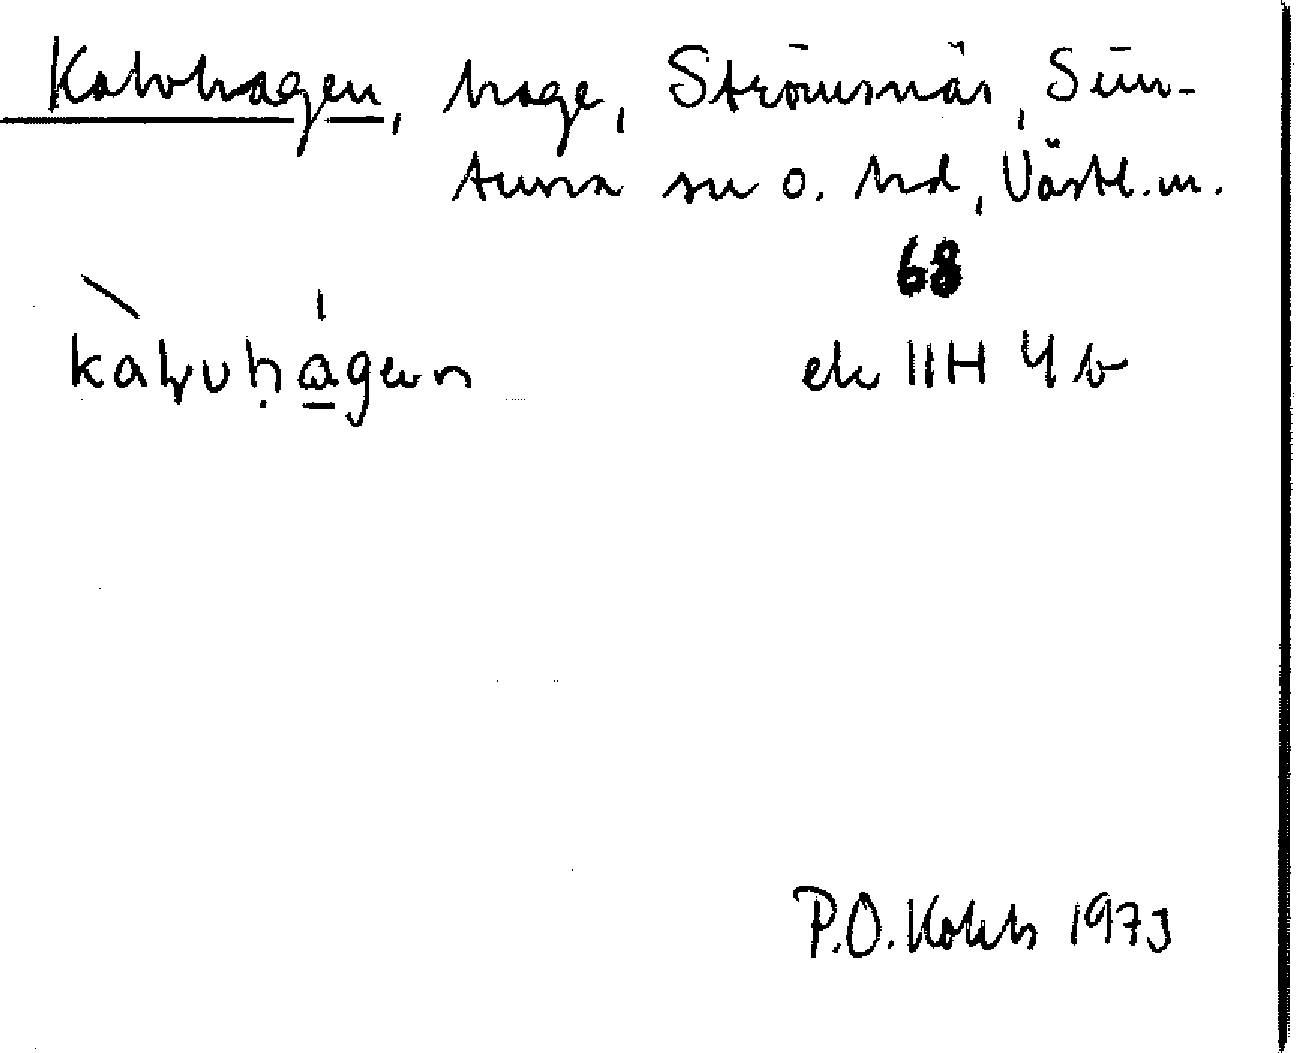 Kalvhagen, hage, Strömsnäs, Simtuna sn o. hd, Västl.m.
68
kalvhagen
ek 11H 4b
P.O. Kolsh 1973